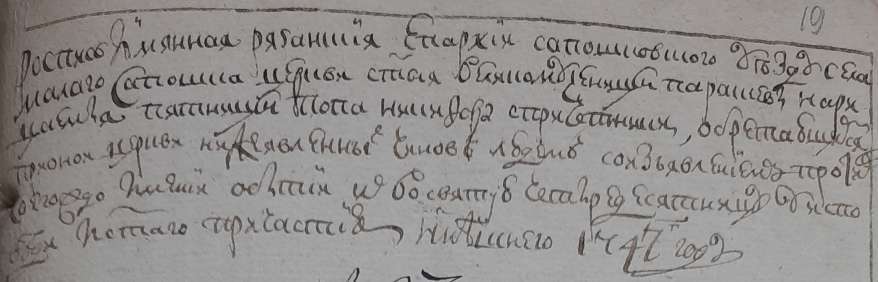 19
Роспись имянная рязанския епархии сапожковского уезду села
малаго сапожка церкви стыя великомученицы параскевы нари
цаемыя пятницы попа никифора с причетники, обретающихся
при оной церкви нижеявленных чинов людеи со изъявлением про
бытия их во святую четыредесятницу у исповеди
и святаго причастия нынешнего 1747 году